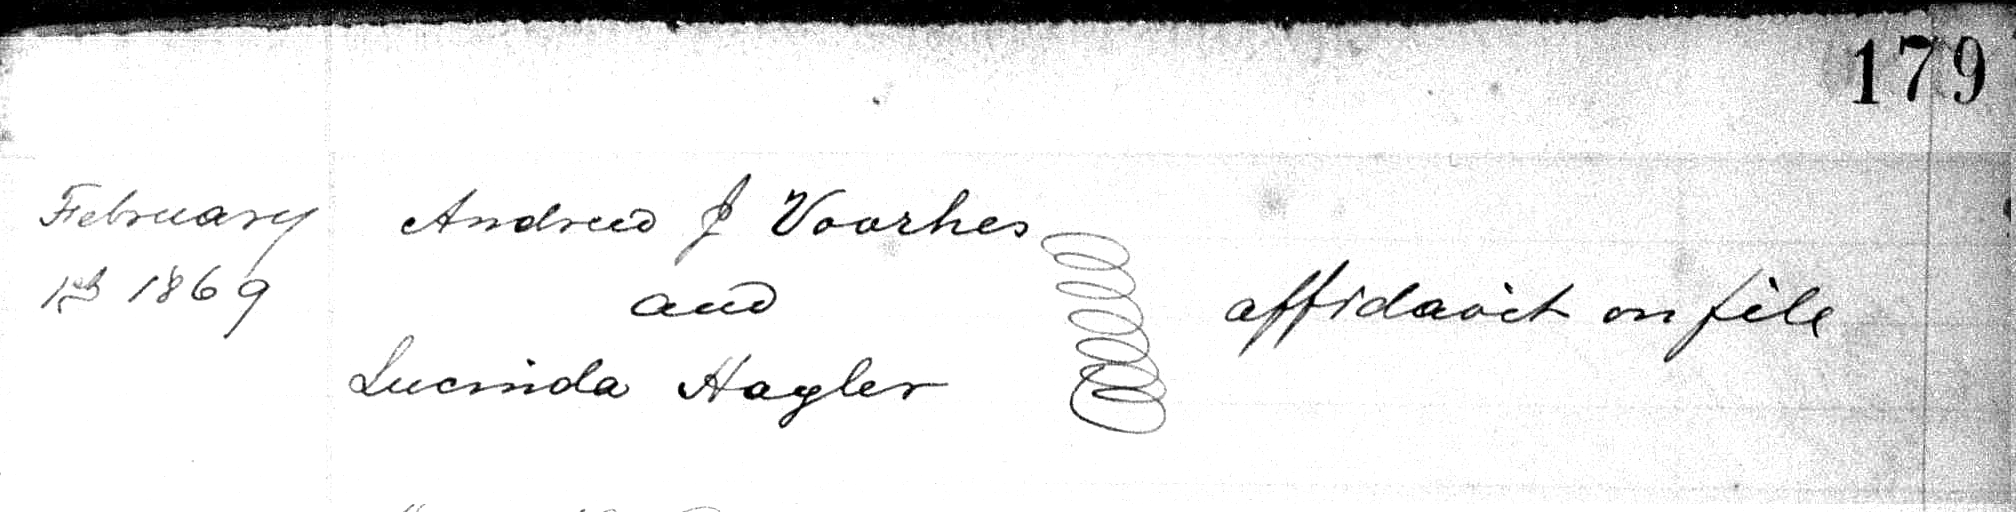 179
February
1st 1869
Andrew J Voorhes
and
Lucinda Hagler
affidavit on file